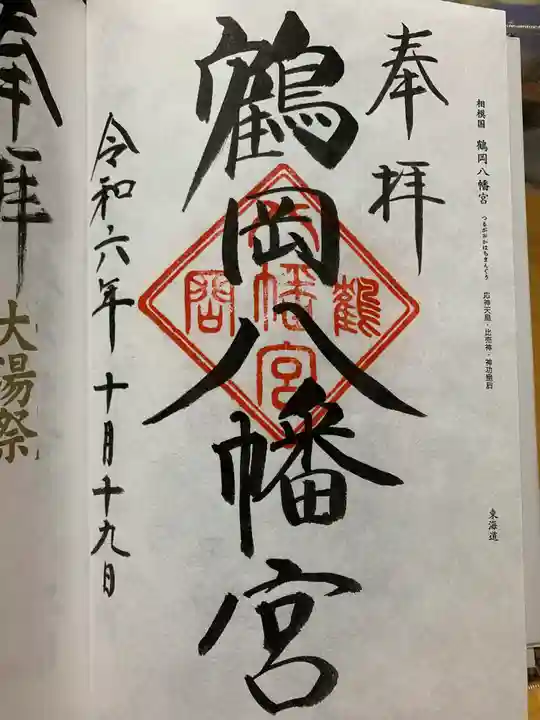 相模国 鶴岡八幡宮 つるがおかはちまんぐう 応神天皇・比売神・神功皇后
東海道
奉拝
鶴岡八幡宮
鶴岡八幡宮
令和六年十月十九日
奉拝
大湯祭